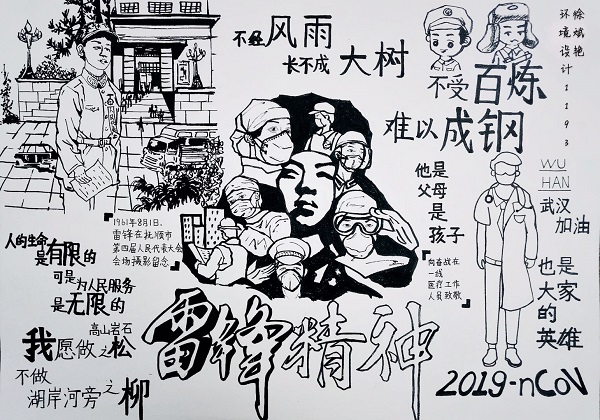 不经风雨
长不成大树
不受百炼
难以成钢
徐斌艳
环境设计1193
他是
父母
是
孩子
WU
HAN
武汉
加油
也是
大家
的
英雄
1961年8月1日，
雷锋在抚顺市
第四届人民代表大会
会场摄影留念
向奋战在
一线
医疗工作
人员致敬
人的生命
是有限的
可是为人民服务
是无限的
我愿做高山岩石之松
不做
湖岸河旁之柳
雷锋精神
2019-nCoV